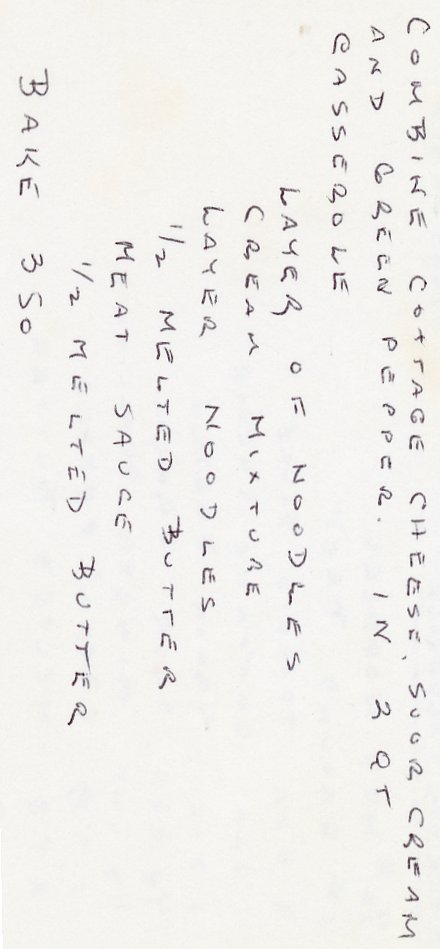 COMBINE COTTAGE CHEESE, SUOR CREAM
AND GREEN PEPPER. IN 2 QT
CASSEROLE
LAYER OF NOODLES
CREAM MIXTURE
LAYER NOODLES
1/2 MELTED BUTTER
MEAT SAUCE
1/2 MELTED BUTTER
BAKE 350